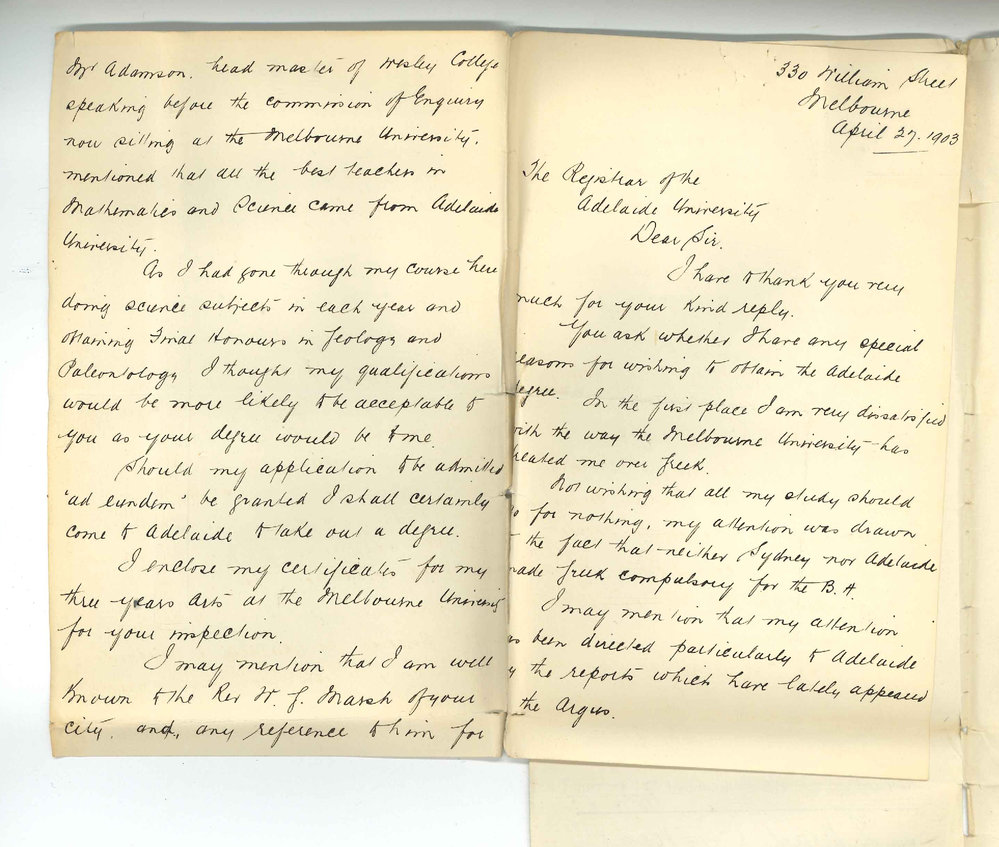 330 William Street
Melbourne
April 27. 1903
The Registrar of the
Adelaide University
Dear Sir.
I have to thank you very
much for your kind reply.
You ask whether I have any special
easons for wishing to obtain the Adelaide
egree. In the first place I am very dissatisfied
ith the way the Melbourne University has
reated me over Greek.
Not wishing that all my study should
o for nothing, my attention was drawn
the fact that neither Sydney nor Adelaide
ade Greek compulsory for the B.A.
I may mention that my attention
as been directed particularly to Adelaide
y the reports which have lately appeared
the Argus.
Mr Adamson. head master of Wesley College
speaking before the commission of Enquiry
now sitting at the Melbourne University.
mentioned that all the best teachers in
Mathematics and Science came from Adelaide
University.
As I had gone through my course here
doing science subjects in each year and
obtaining Final Honours in Geology and
Paleontology I thought my qualifications
would be more likely to be acceptable to
you as your degree would be to me.
Should my application to be admitted
'ad eundem' be granted I shall certainly
come to Adelaide to take out a degree.
I enclose my certificates for my
three years Arts at the Melbourne University
for your inspection.
I may mention that I am well
known to the Rev W. G. Marsh of your
city. and, any reference to him for